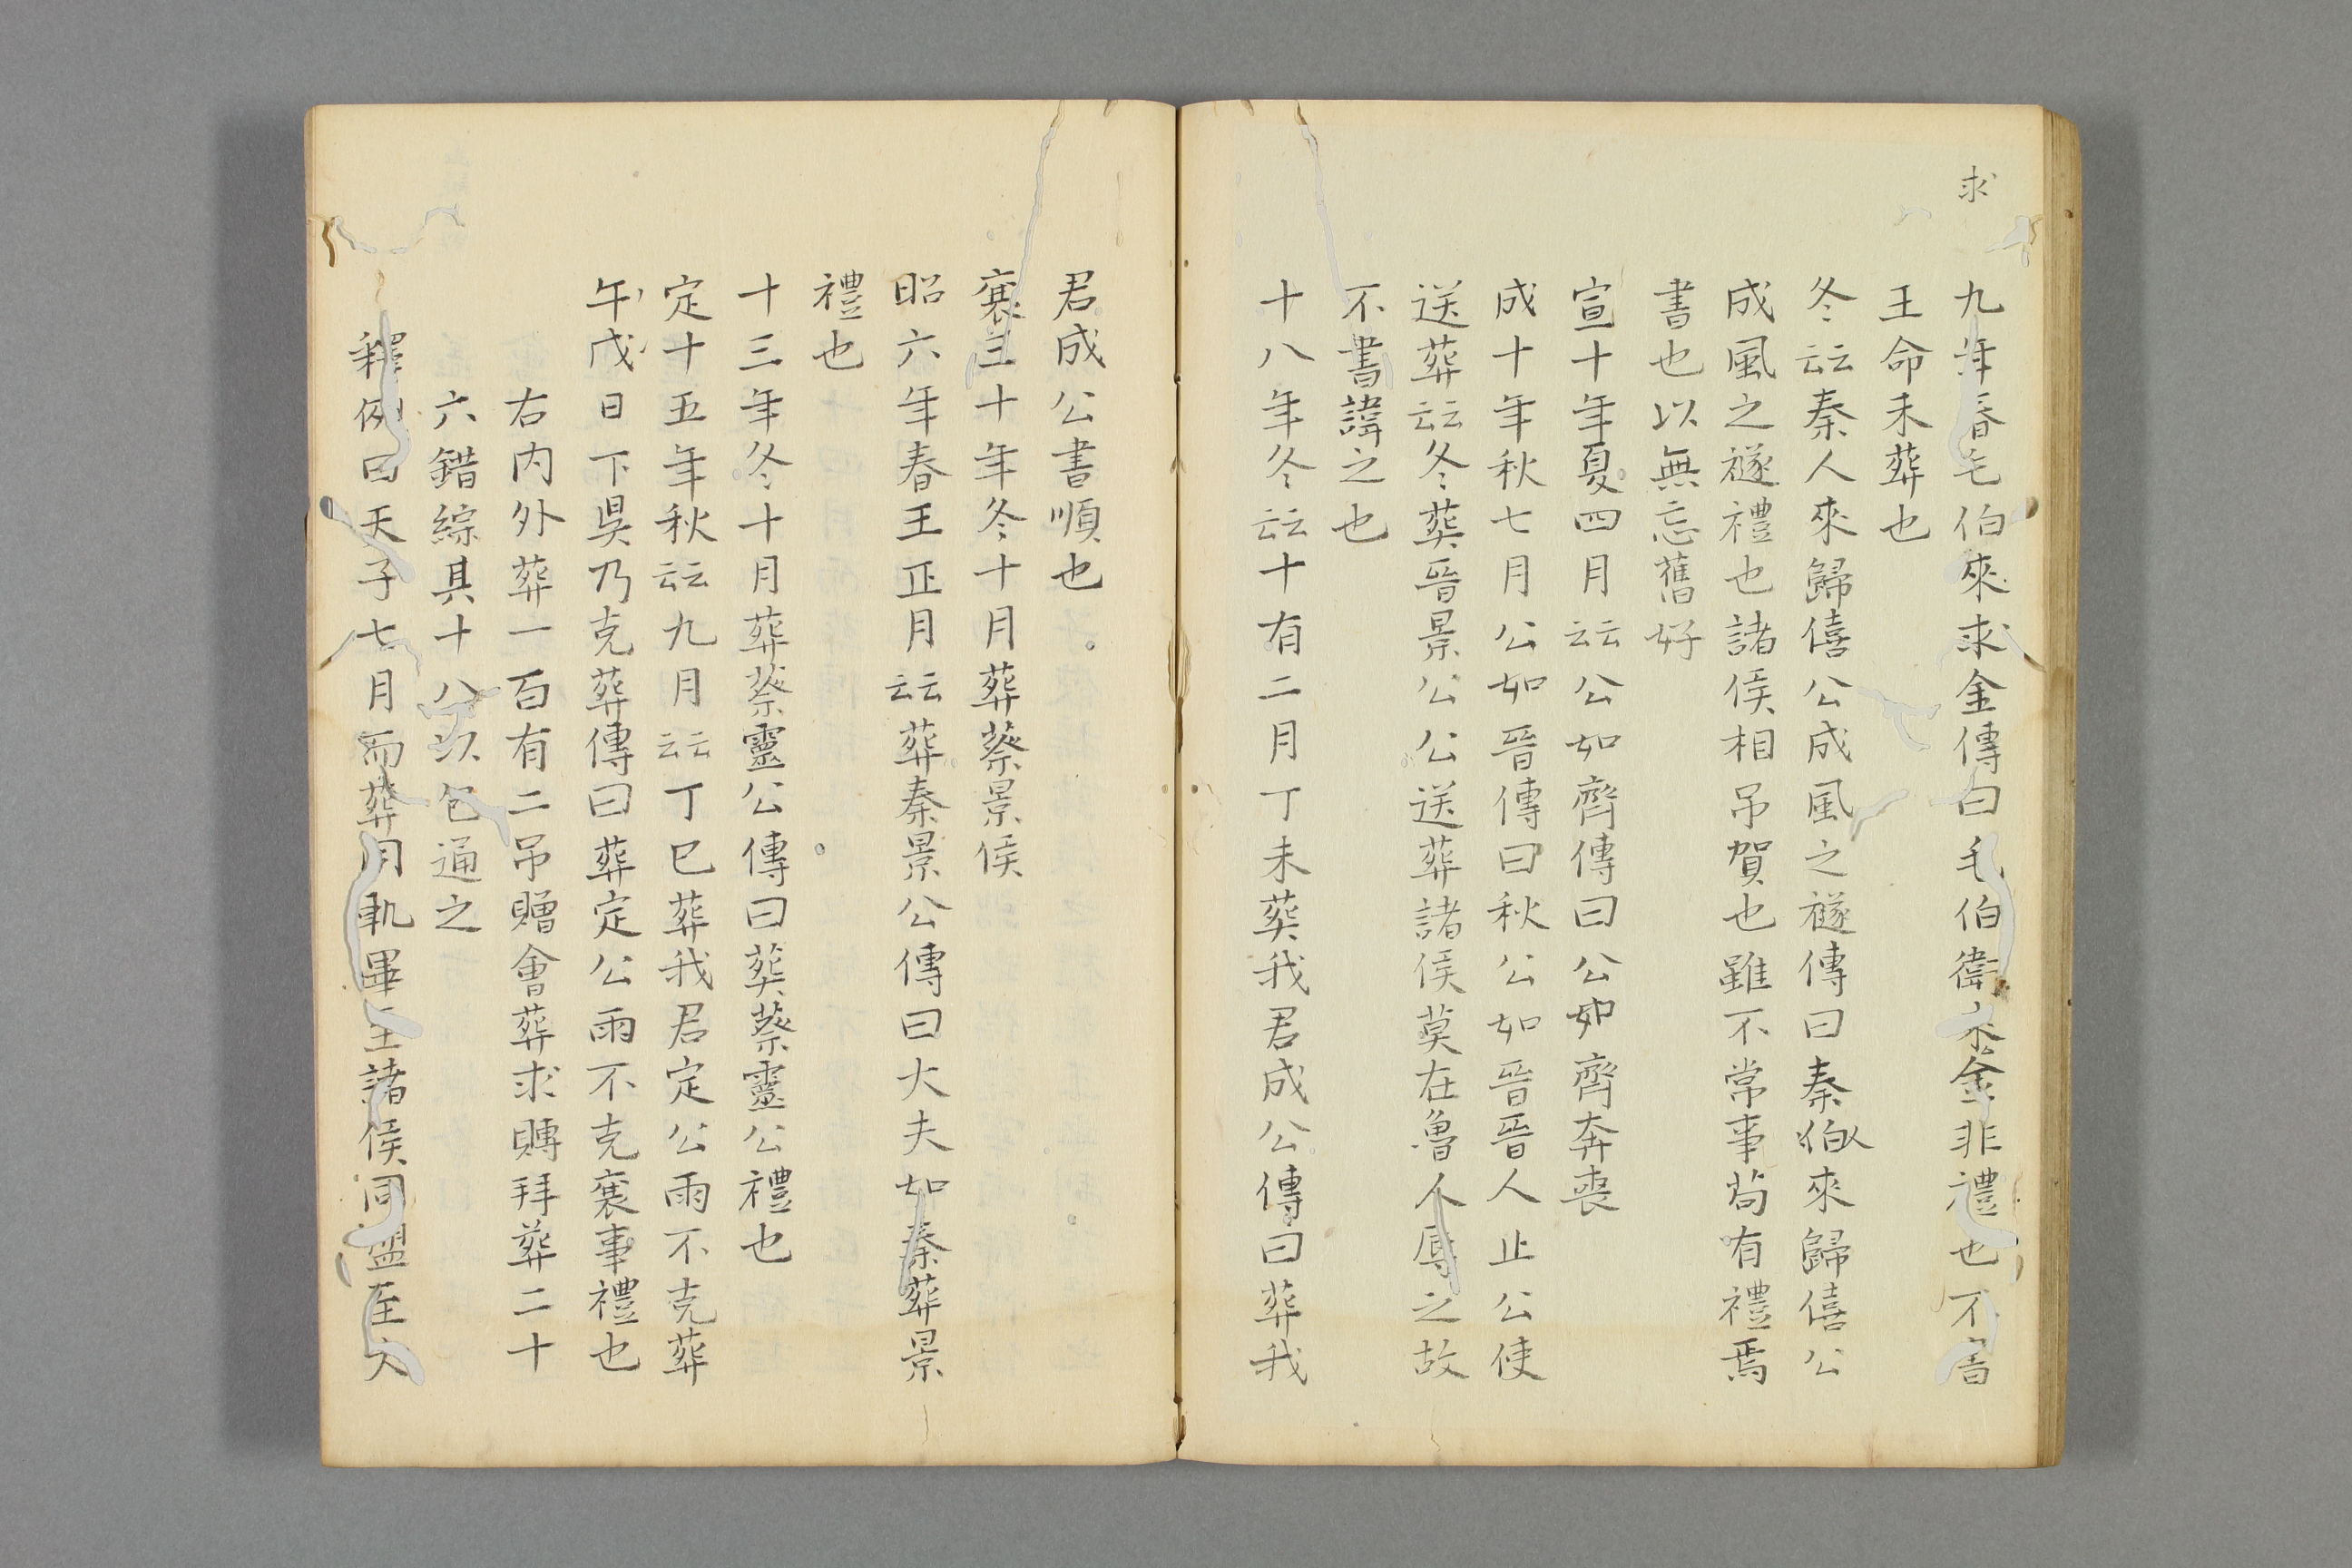 求
九年春毛伯來求金傳曰毛伯衛來金非禮也不書
王命未葬也
冬云云秦人來歸僖公成風之襚傳曰秦伯人來歸僖公
成風之襚禮也諸侯相吊賀也雖不當事苟有禮焉
書也以無忘舊好
宣十年夏四月云云公如齊傳曰公如齊奔喪
成十年秋七月公如晉傳曰秋公如晉晉人止公使
送葬云云冬葬晉景公公送葬諸侯莫在魯人辱之故
不書諱之也
十八年冬云云十有二月丁未葬我君成公傳曰葬我
君成公書順也
襄三十年冬十月葬蔡景侯
昭六年春王正月云云葬秦景公傳曰大夫如秦葬景
禮也
十三年冬十月葬蔡靈公傳曰葬蔡靈公禮也
定十五年秋云云九月云云丁巳葬我君定公雨不克葬
午戊日下昊乃克葬傳曰葬定公雨不克襄事禮也
右内外葬一百有二吊贈會葬求賻拜葬二十
六錯綜其十八以包通之
釋例曰天子七月而葬同軌畢至諸侯同盟至大